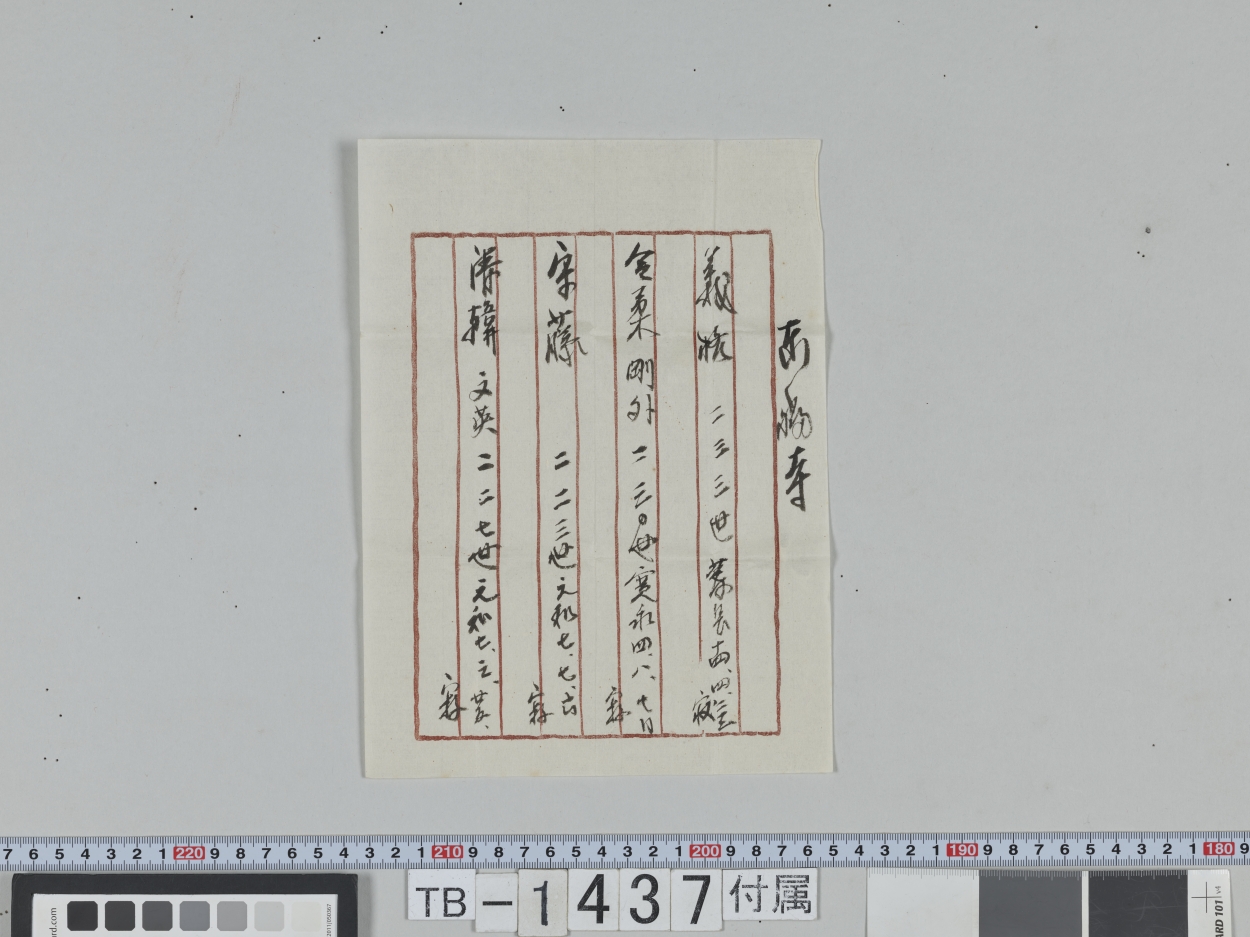 東福寺
義 二三三世 慶長 四、 寂
令柔剛外 二三〇世 寛永四、八、七日 寂
守藤 二二三世 元和七、七、 寂
清韓文英 二二七世 元和七、三、廿五、 寂
7 6 5 4 3 2 1 220 9 8 7 6 5 4 3 2 1 210 9 8 7 6 5 4 3 2 1 200 9 8 7 6 5 4 3 2 1 190 9 8 7 6 5 4 3 2 1 180 9
TB-1437付属